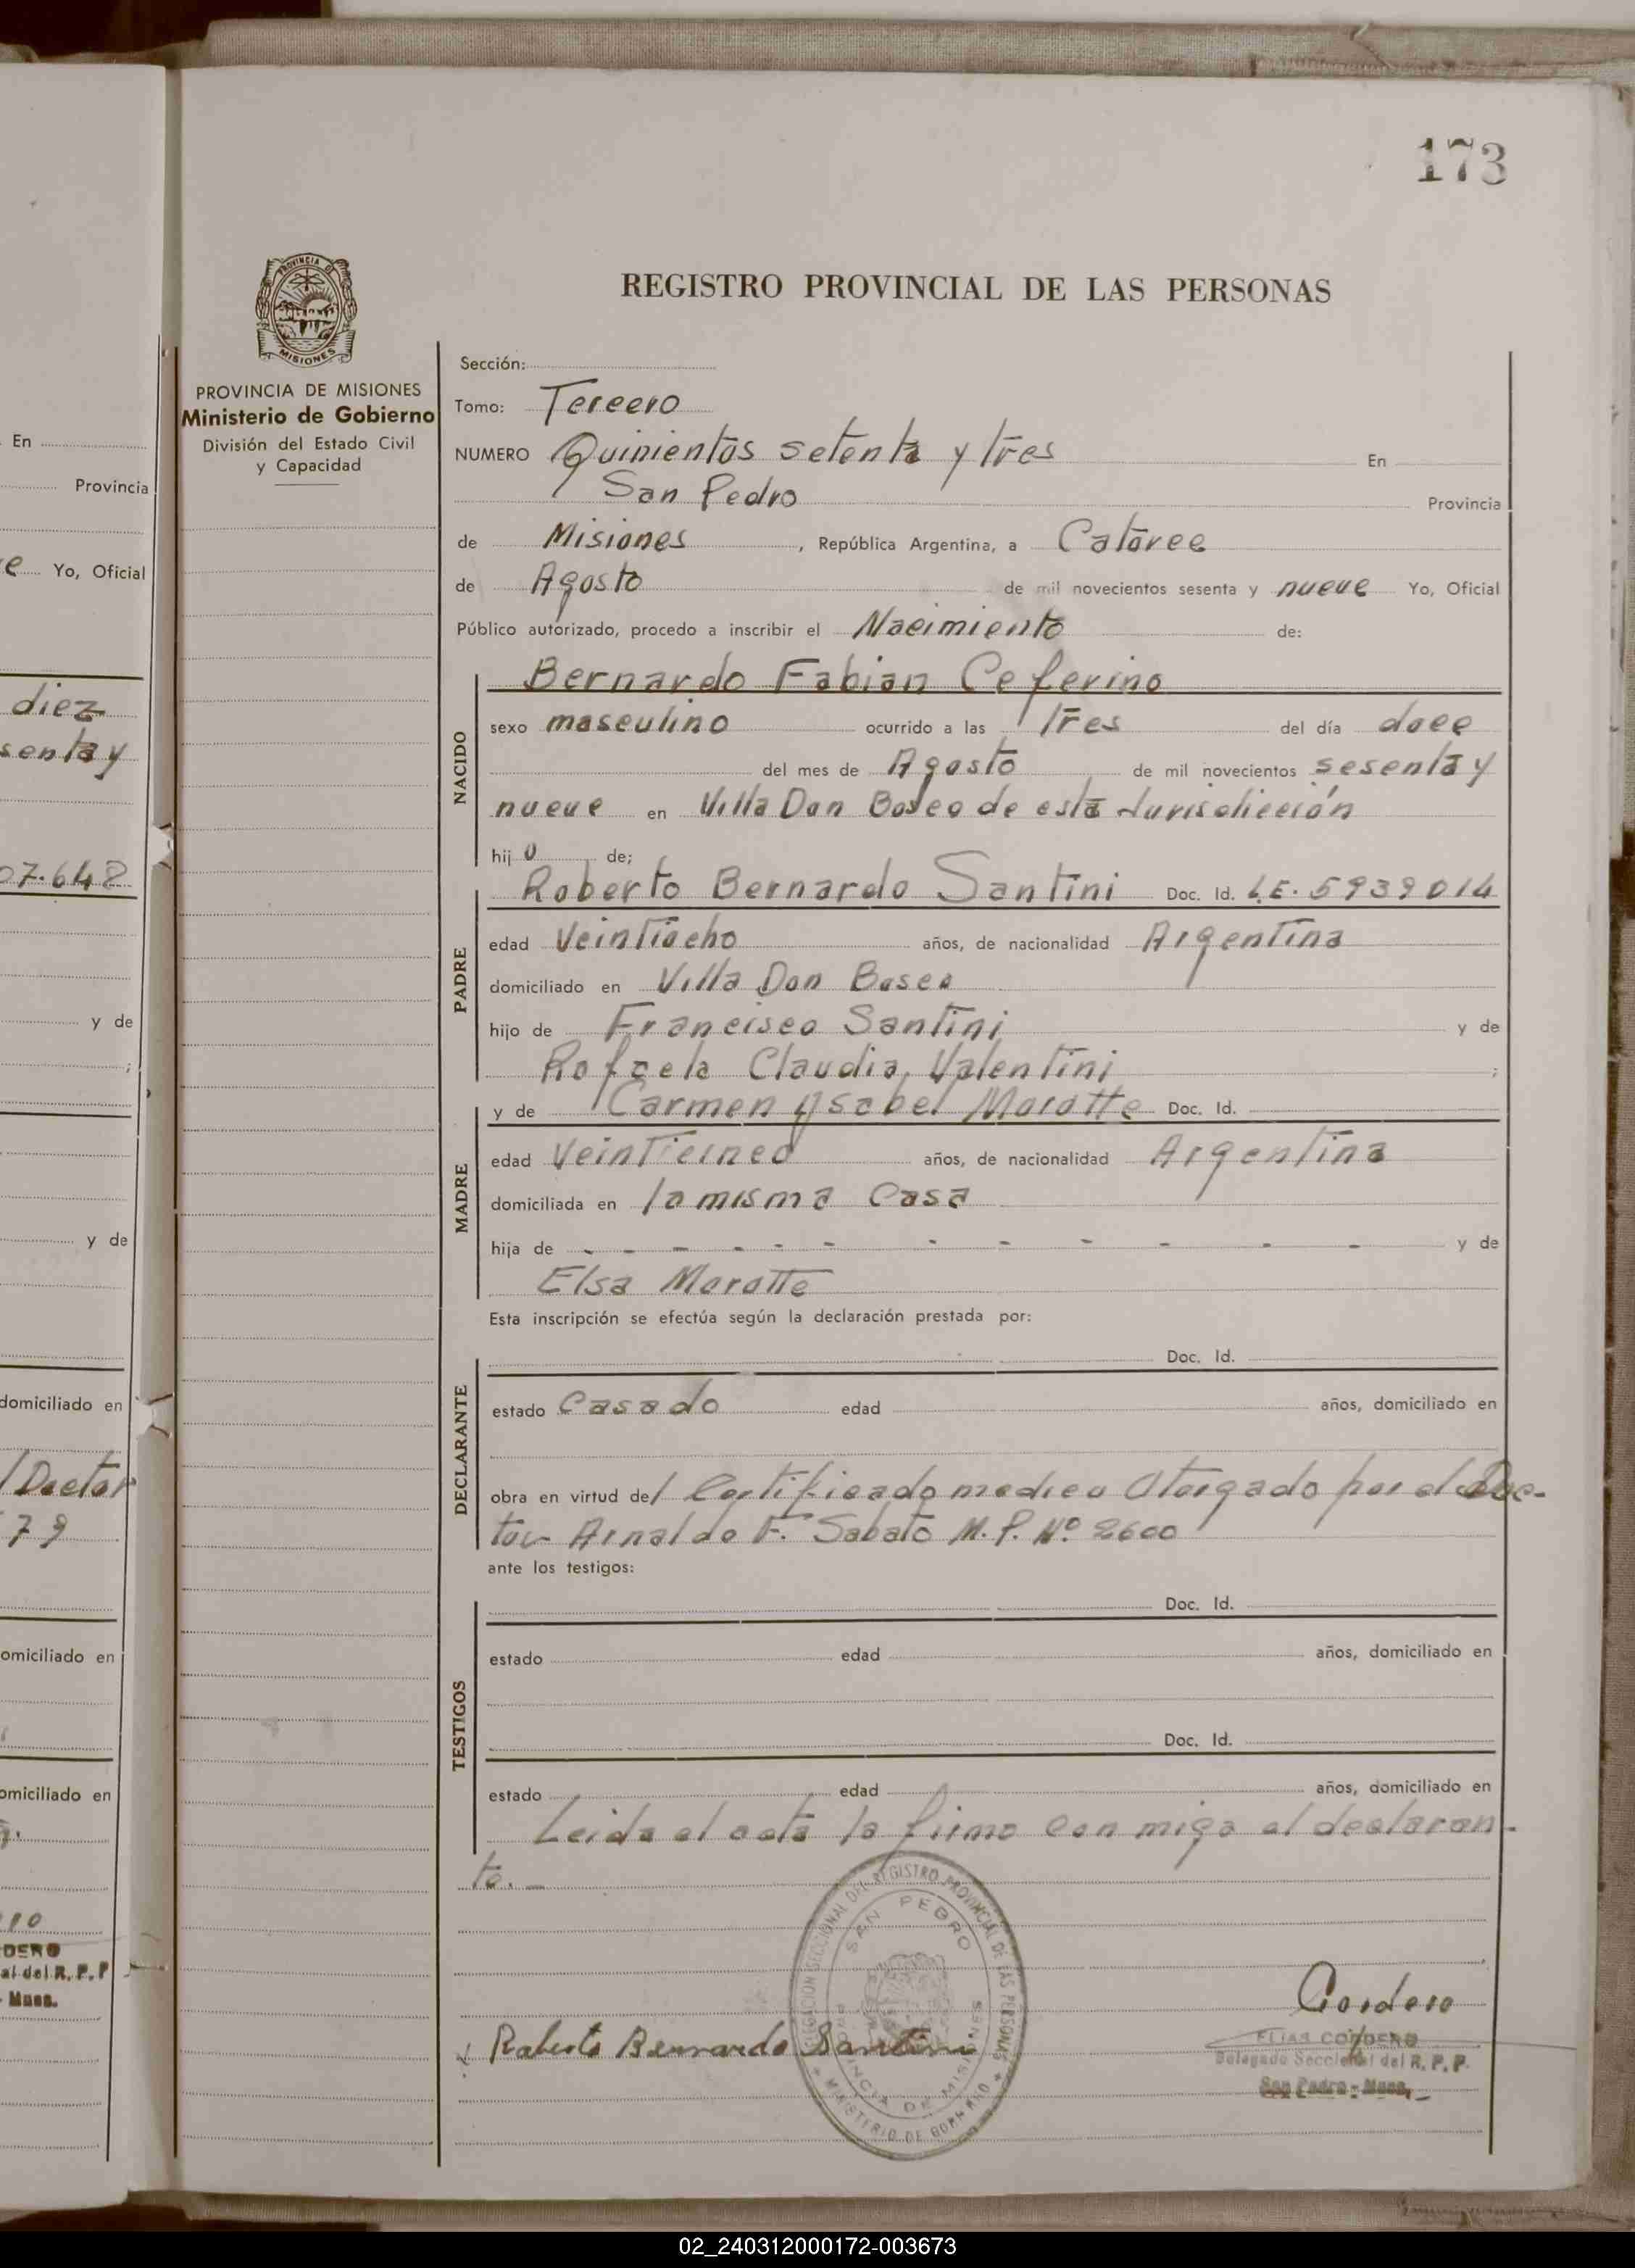 173
PROVINCIA DE
MISIONES
PROVINCIA DE MISIONES
Ministerio de Gobierno
División del Estado Civil
y Capacidad
REGISTRO PROVINCIAL DE LAS PERSONAS
Sección:
Tomo: Tercero
NUMERO Quinientos setenta y tres En
San Pedro Provincia
de Misiones , República Argentina, a Catorce
de Agosto de mil novecientos sesenta y nueve Yo, Oficial
Público autorizado, procedo a inscribir el Nacimiento de:
NACIDO
Bernardo Fabian Ceferino
sexo masculino ocurrido a las Tres del día doce
del mes de Agosto de mil novecientos sesenta y
nueve en Villa Don Bosco de esta Jurisdicción
hijo de;
PADRE
Roberto Bernardo Santini Doc. Id. L.E. 5939014
edad Veintiocho años, de nacionalidad Argentina
domiciliado en Villa Don Bosco
hijo de Francisco Santini y de
Rafaela Claudia Valentini ;
MADRE
y de Carmen Ysabel Morotte Doc. Id.
edad Veinticinco años, de nacionalidad Argentina
domiciliada en la misma Casa
hija de - - - - - - - - - - - - y de
Elsa Morotte
Esta inscripción se efectúa según la declaración prestada por:
DECLARANTE
Doc. Id.
estado Casado edad años, domiciliado en
obra en virtud del Certificado medico Otorgado por el Doc-
tor Arnaldo F. Sabato M.P. Nº 2600
ante los testigos:
TESTIGOS
Doc. Id.
estado edad años, domiciliado en
Doc. Id.
estado edad años, domiciliado en
Leida el acta la firma con migo el declaran-
te. -
DELEGACION SECCIONAL DEL REGISTRO PROVINCIAL DE LAS PERSONAS
SAN PEDRO
PROVINCIA DE MISIONES
MINISTERIO DE GOBIERNO
Roberto Bernardo Santini
Cordero
ELIAS CORDERO
Delegado Seccional del R. P. P.
San Pedro - Mnes.
En
Provincia
Yo, Oficial
diez
senta y
07.648
y de
;
y de
domiciliado en
Doctor
79
omiciliado en
omiciliado en
DERO
al del R. P. P
- Mnes.
02_240312000172-003673